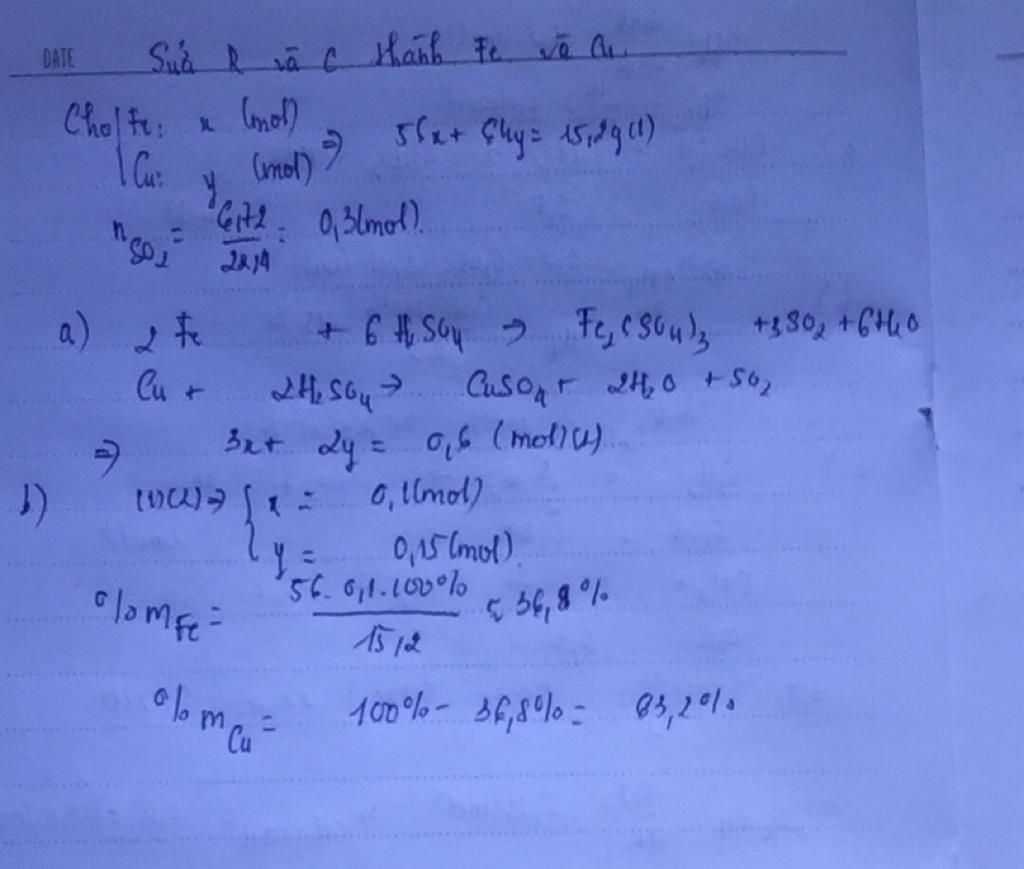 DATE Sửa R và C thành Fe và Cu.
Cho Fe: x (mol) => 56x + 64y = 15,2g (1)
Cu: y (mol)
nSO2 = 6,72/22,4 = 0,3(mol).
a) 2 Fe + 6 H2SO4 → Fe2(SO4)3 + 3SO2 + 6H2O
Cu + 2H2SO4 → CuSO4 + 2H2O + SO2
=> 3x + 2y = 0,6 (mol)(2)
b) (1)(2) => x = 0,1(mol)
y = 0,15(mol).
%mFe = 56.0,1.100%/15,2 ≈ 36,8%
%mCu = 100% - 36,8% = 63,2%